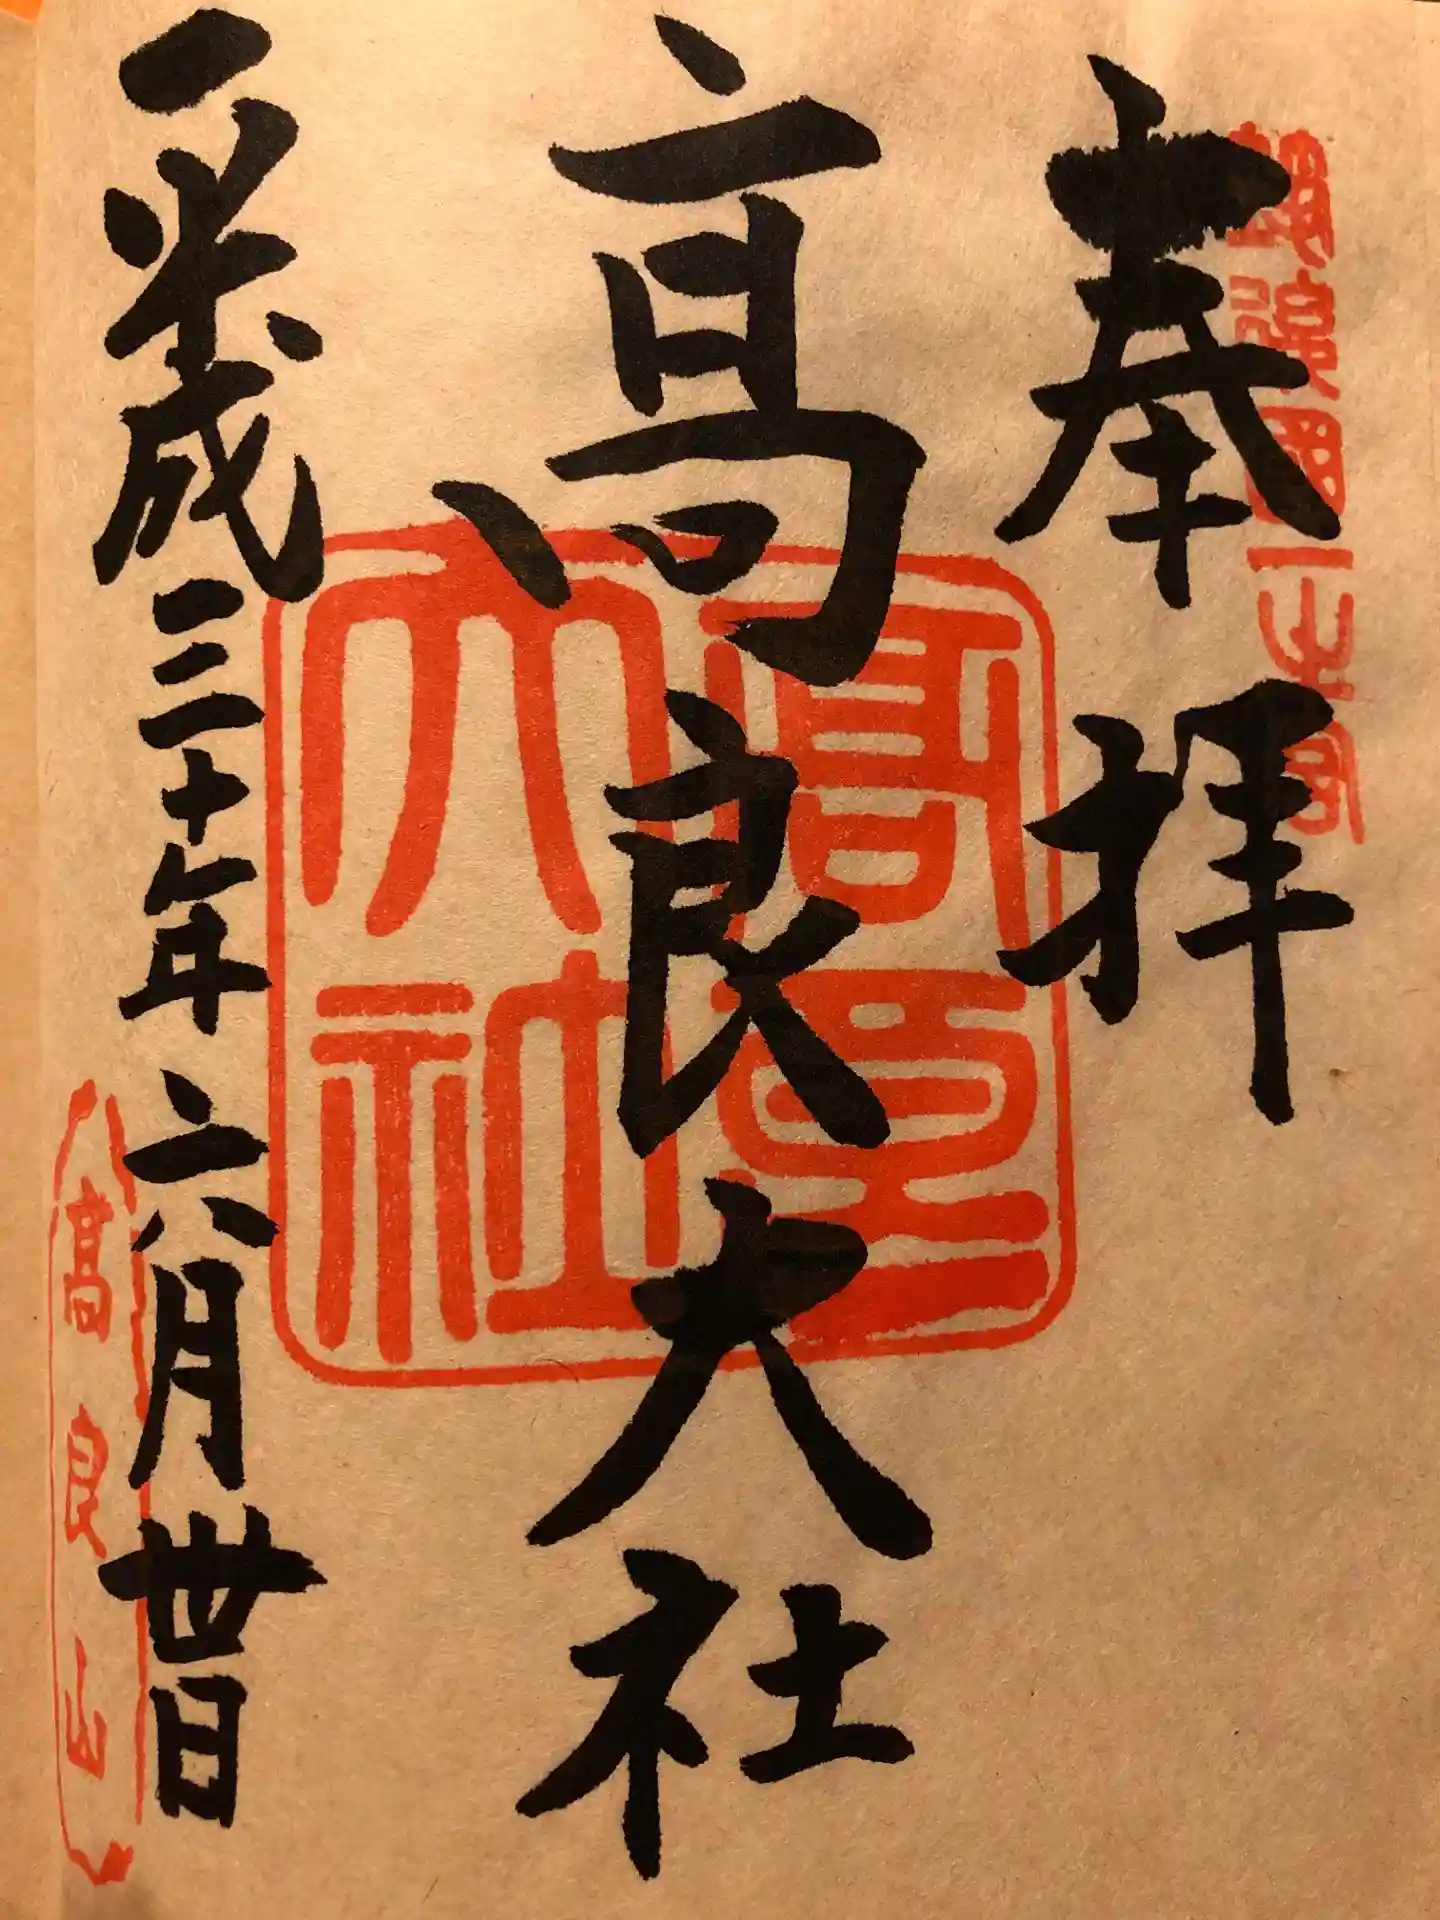 筑後国一之宮
奉拝
高良大社
高良大社
平成三十年六月卅日
高良山